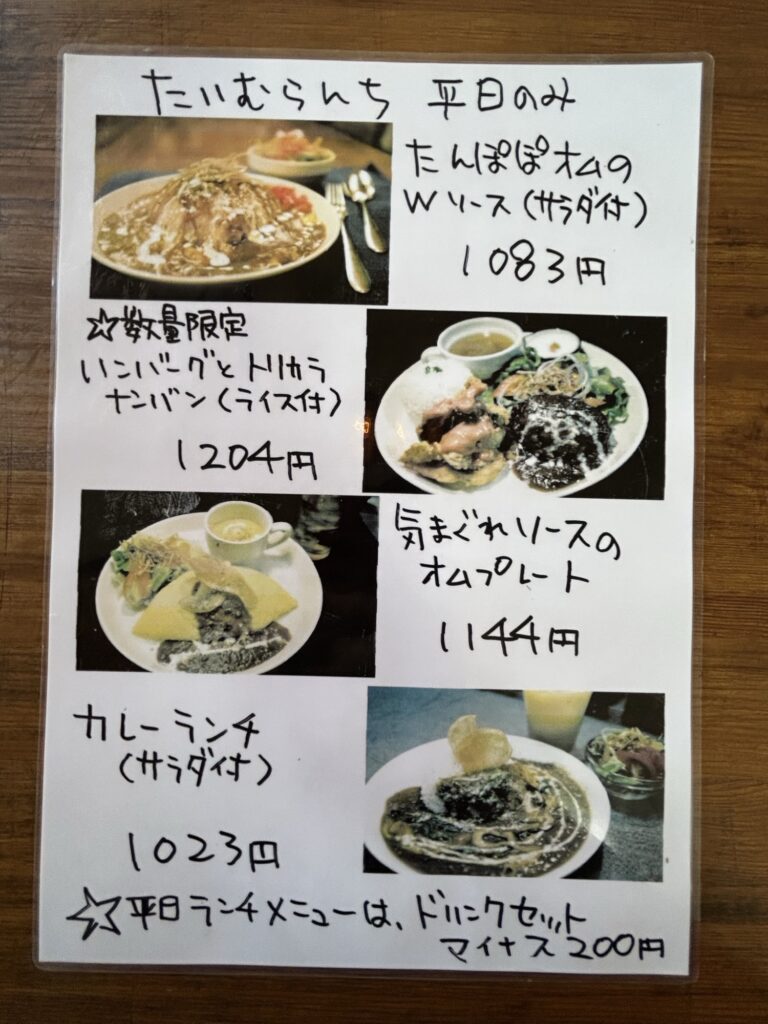 たいむらんち 平日のみ
たんぽぽオムの
Wソース(サラダ付)
1083円
☆数量限定
ハンバーグとトリカラ
ナンバン(ライス付)
1204円
気まぐれソースの
オムプレート
1144円
カレーランチ
(サラダ付)
1023円
☆平日ランチメニューは、ドリンクセット
マイナス200円